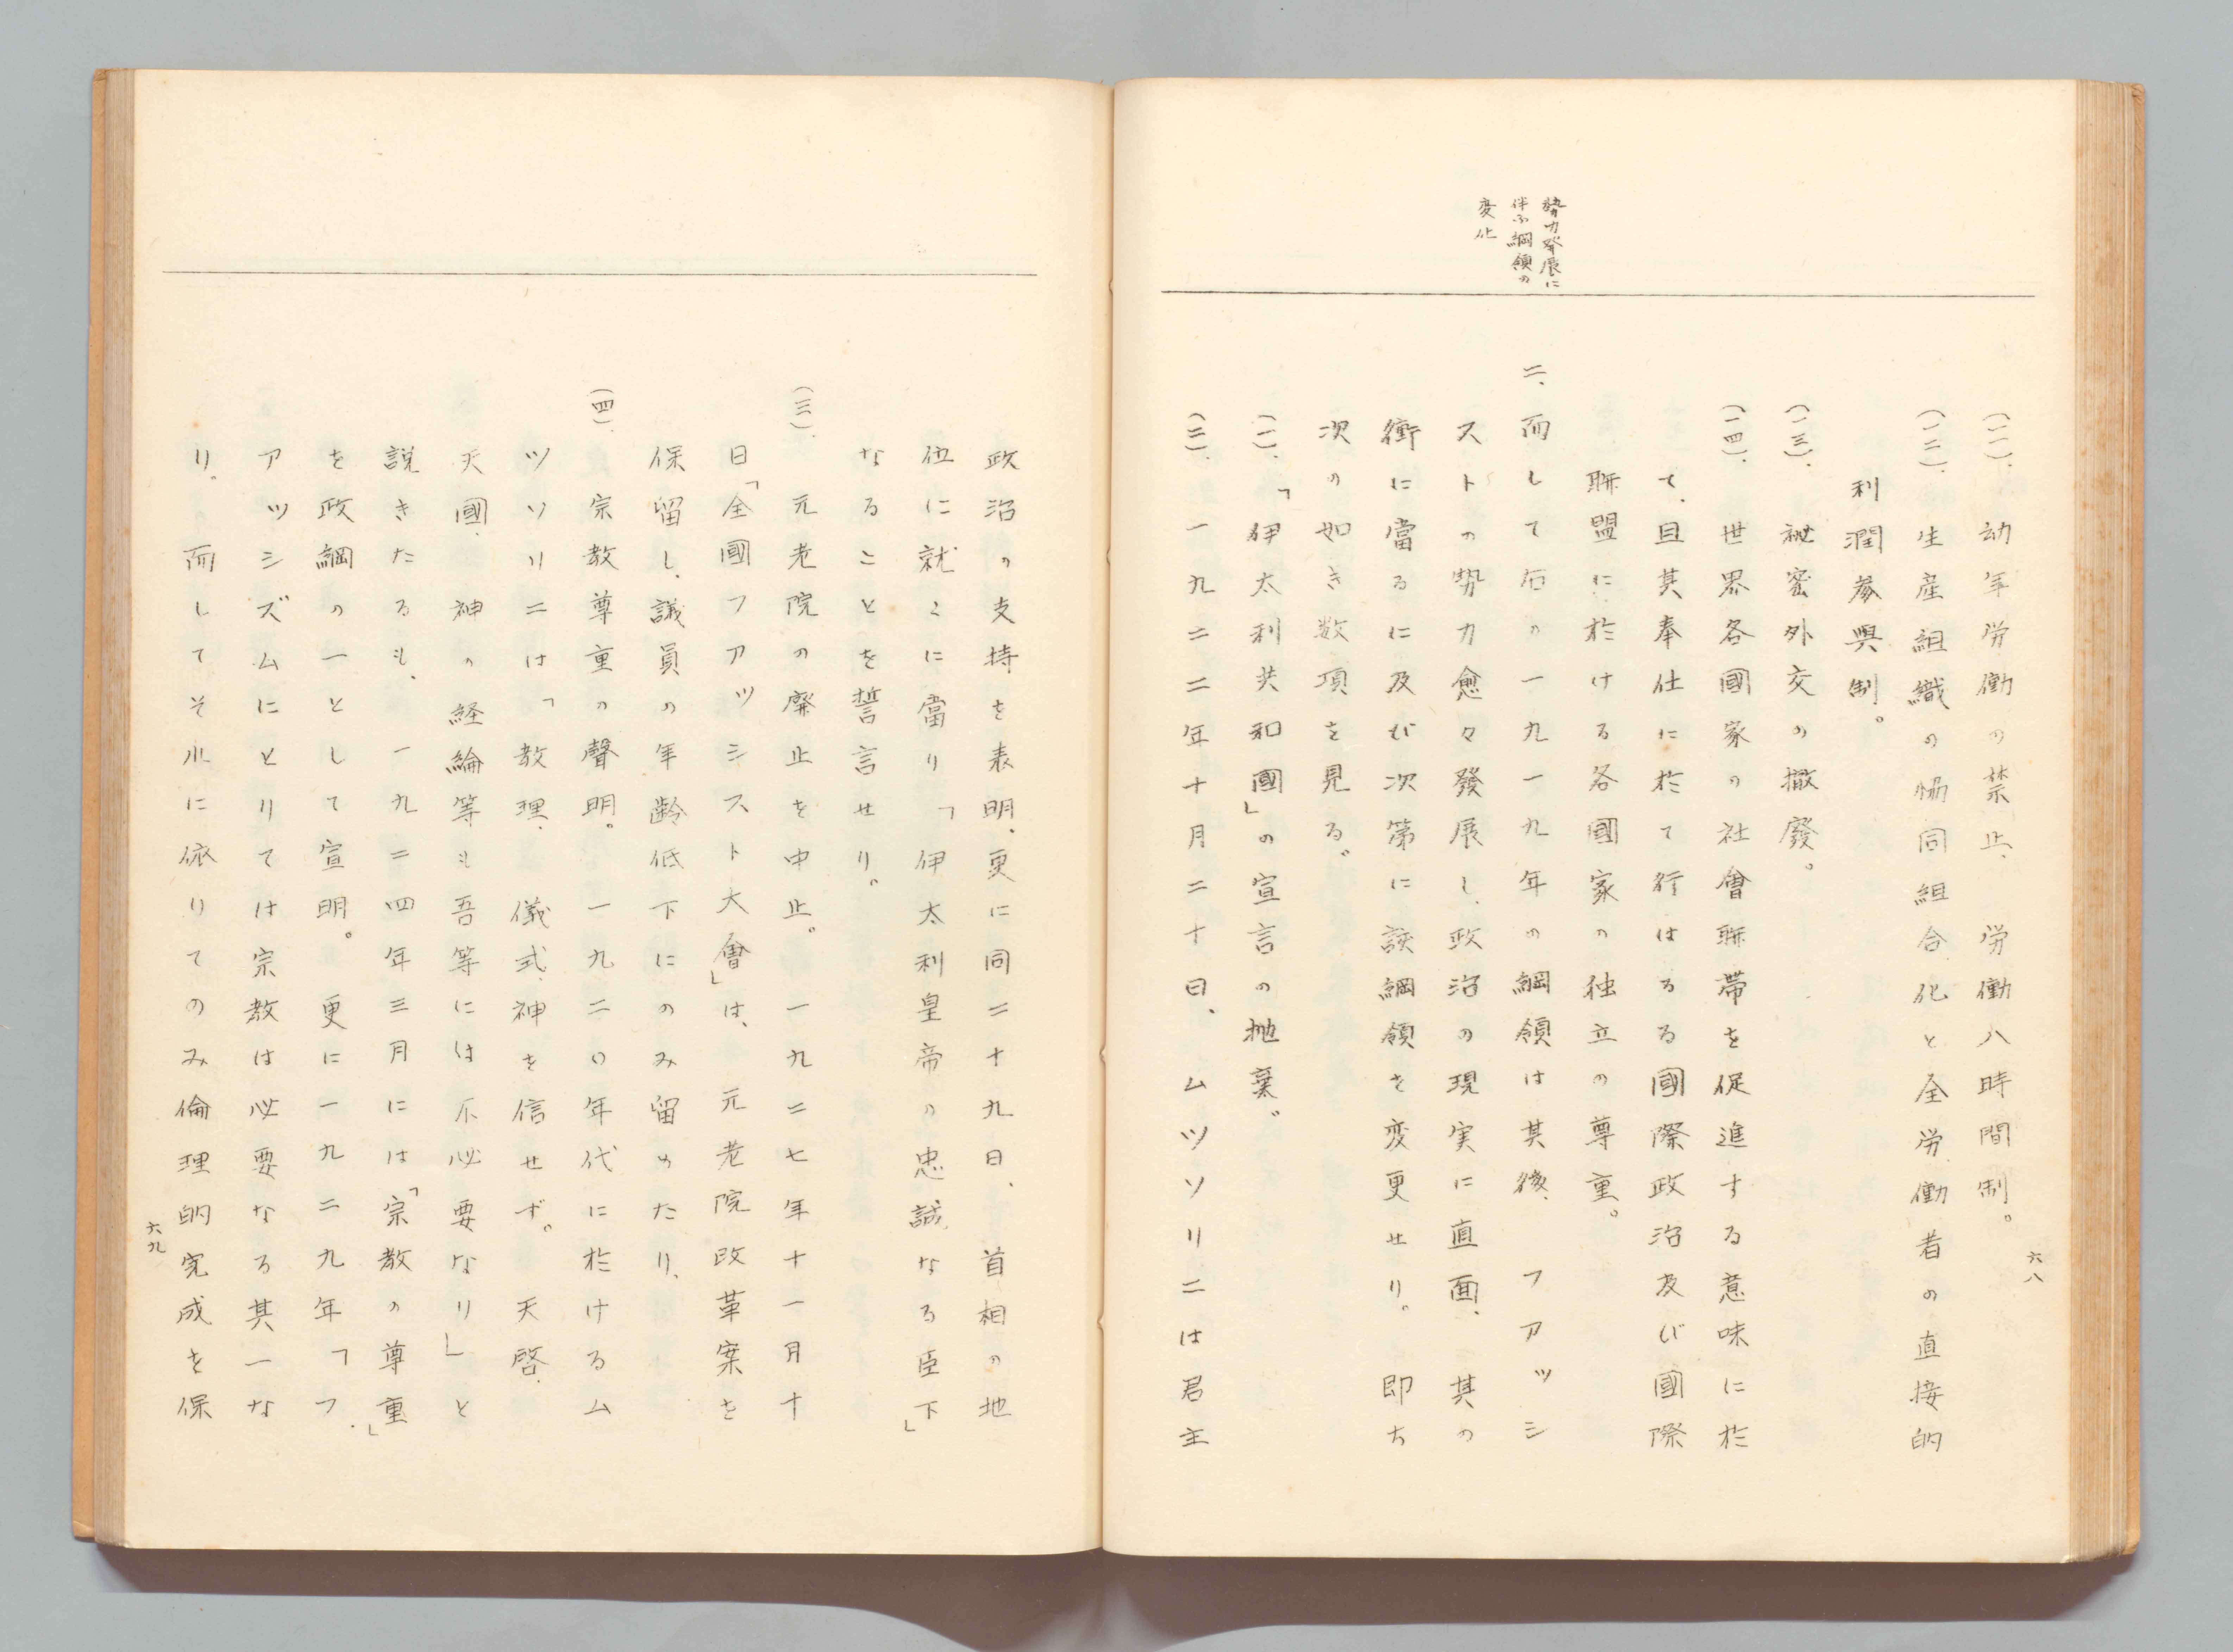 六八
勢力発展に
伴ふ綱領の
変化
(一一)、幼年労働の禁止、労働八時間制。
(一二)、生産組織の協同組合化と全労働者の直接的
利潤参與制。
(一三)、秘密外交の撤廢。
(一四)、世界各國家の社會聯帯を促進する意味に於
て、且其奉仕に於て行はるる國際政治及び國際
聯盟に於ける各國家の独立の尊重。
二、而して右の一九一九年の綱領は其後、フアッシ
ストの勢力愈々發展し、政治の現実に直面、其の
衝に當るに及び次第に該綱領を変更せり。即ち
次の如き数項を見る。
(一)、「伊太利共和國」の宣言の抛棄。
(二)、一九二二年十月二十日、ムツソリニは君主
政治の支持を表明、更に同二十九日、首相の地
位に就くに當り「伊太利皇帝の忠誠なる臣下」
なることを誓言せり。
(三)、元老院の廃止を中止。一九二七年十一月十
日「全國フアッシスト大會」は、元老院改革案を
保留し、議員の年齢低下にのみ留めたり、
(四)、宗教尊重の聲明。一九二〇年代に於けるム
ツソリニは「教理、儀式、神を信せず。天啓、
天國、神の経綸等も吾等には不必要なり」と
説きたるも、一九二四年三月には「宗教の尊重」
を政綱の一として宣明。更に一九二九年「フ
アッシズムにとりては宗教は必要なる其一な
り。而してそれに依りてのみ倫理的完成を保
六九